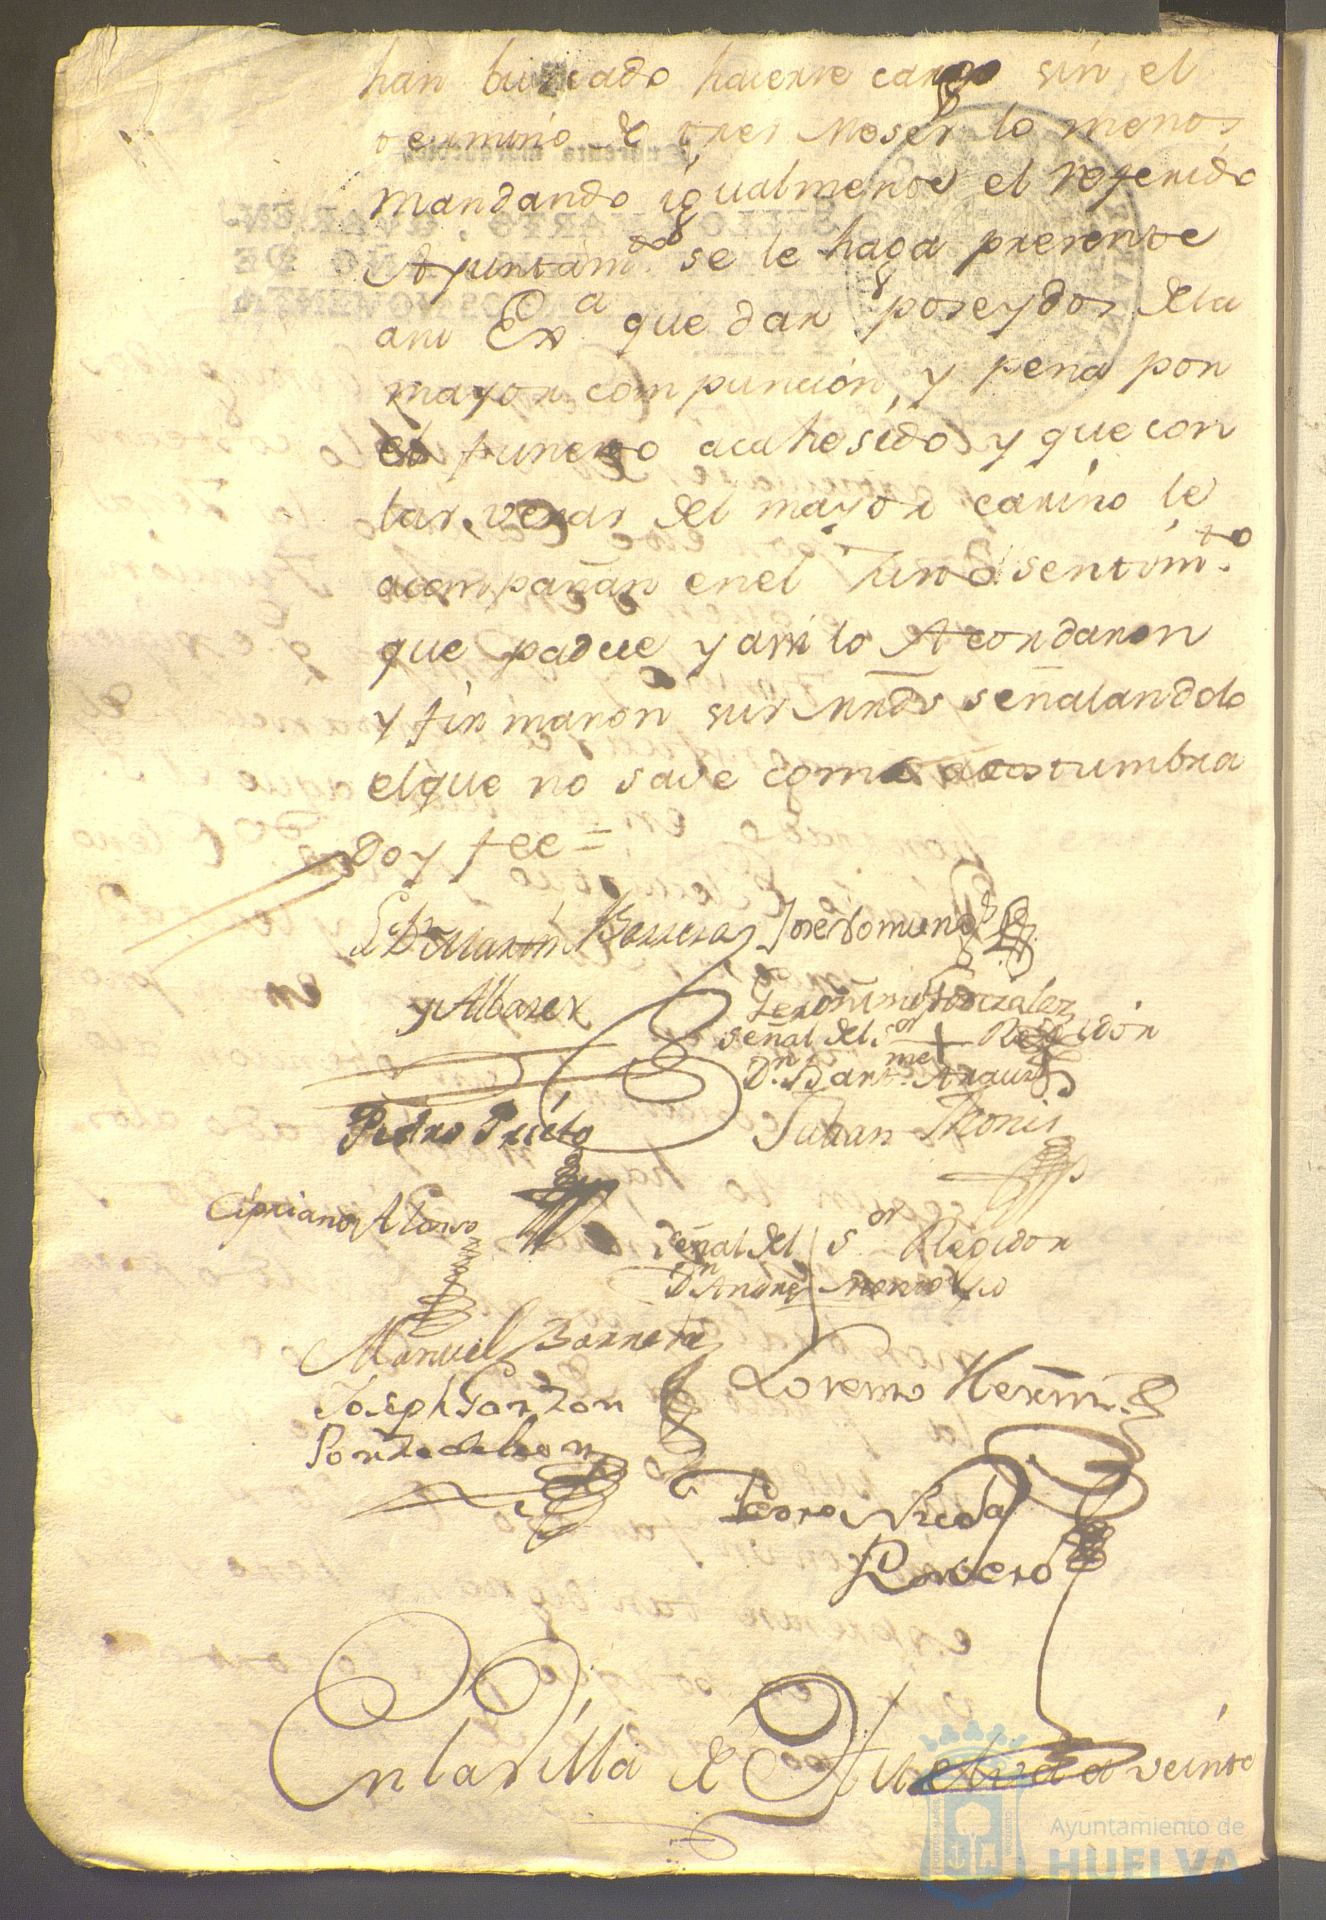 han buscado hacerse cargo sin el
termino de tres meses lo menos
mandando igualmente el referido
Ayuntam.to se le haga presente
asu Exa que dan poseydos dela
mayor compuncion, y pena por
el funesto acahesido y que con
las veras del mayor cariño le
acompañan enel sentim.to
que padece y assi lo Acordaron
y firmaron sus mrds señalandolo
elque no save como acostumbra
Doy fee =
Martin Barrera
y Albarez
Jose Romuno
Geronimo Gonzalez
señal del s.or + Regidor
D.n Bart.me Arauz
Pedro Prieto
Juan
Cipriano Alonso
Señal del s.or Regidor
D.n Andres
Manuel Barrera
Lorenzo Hern.
Joseph Garzon
Ponze de leon
Pedro
Romero
En la Villa de Huelva a veinte
Ayuntamiento de
HUELVA